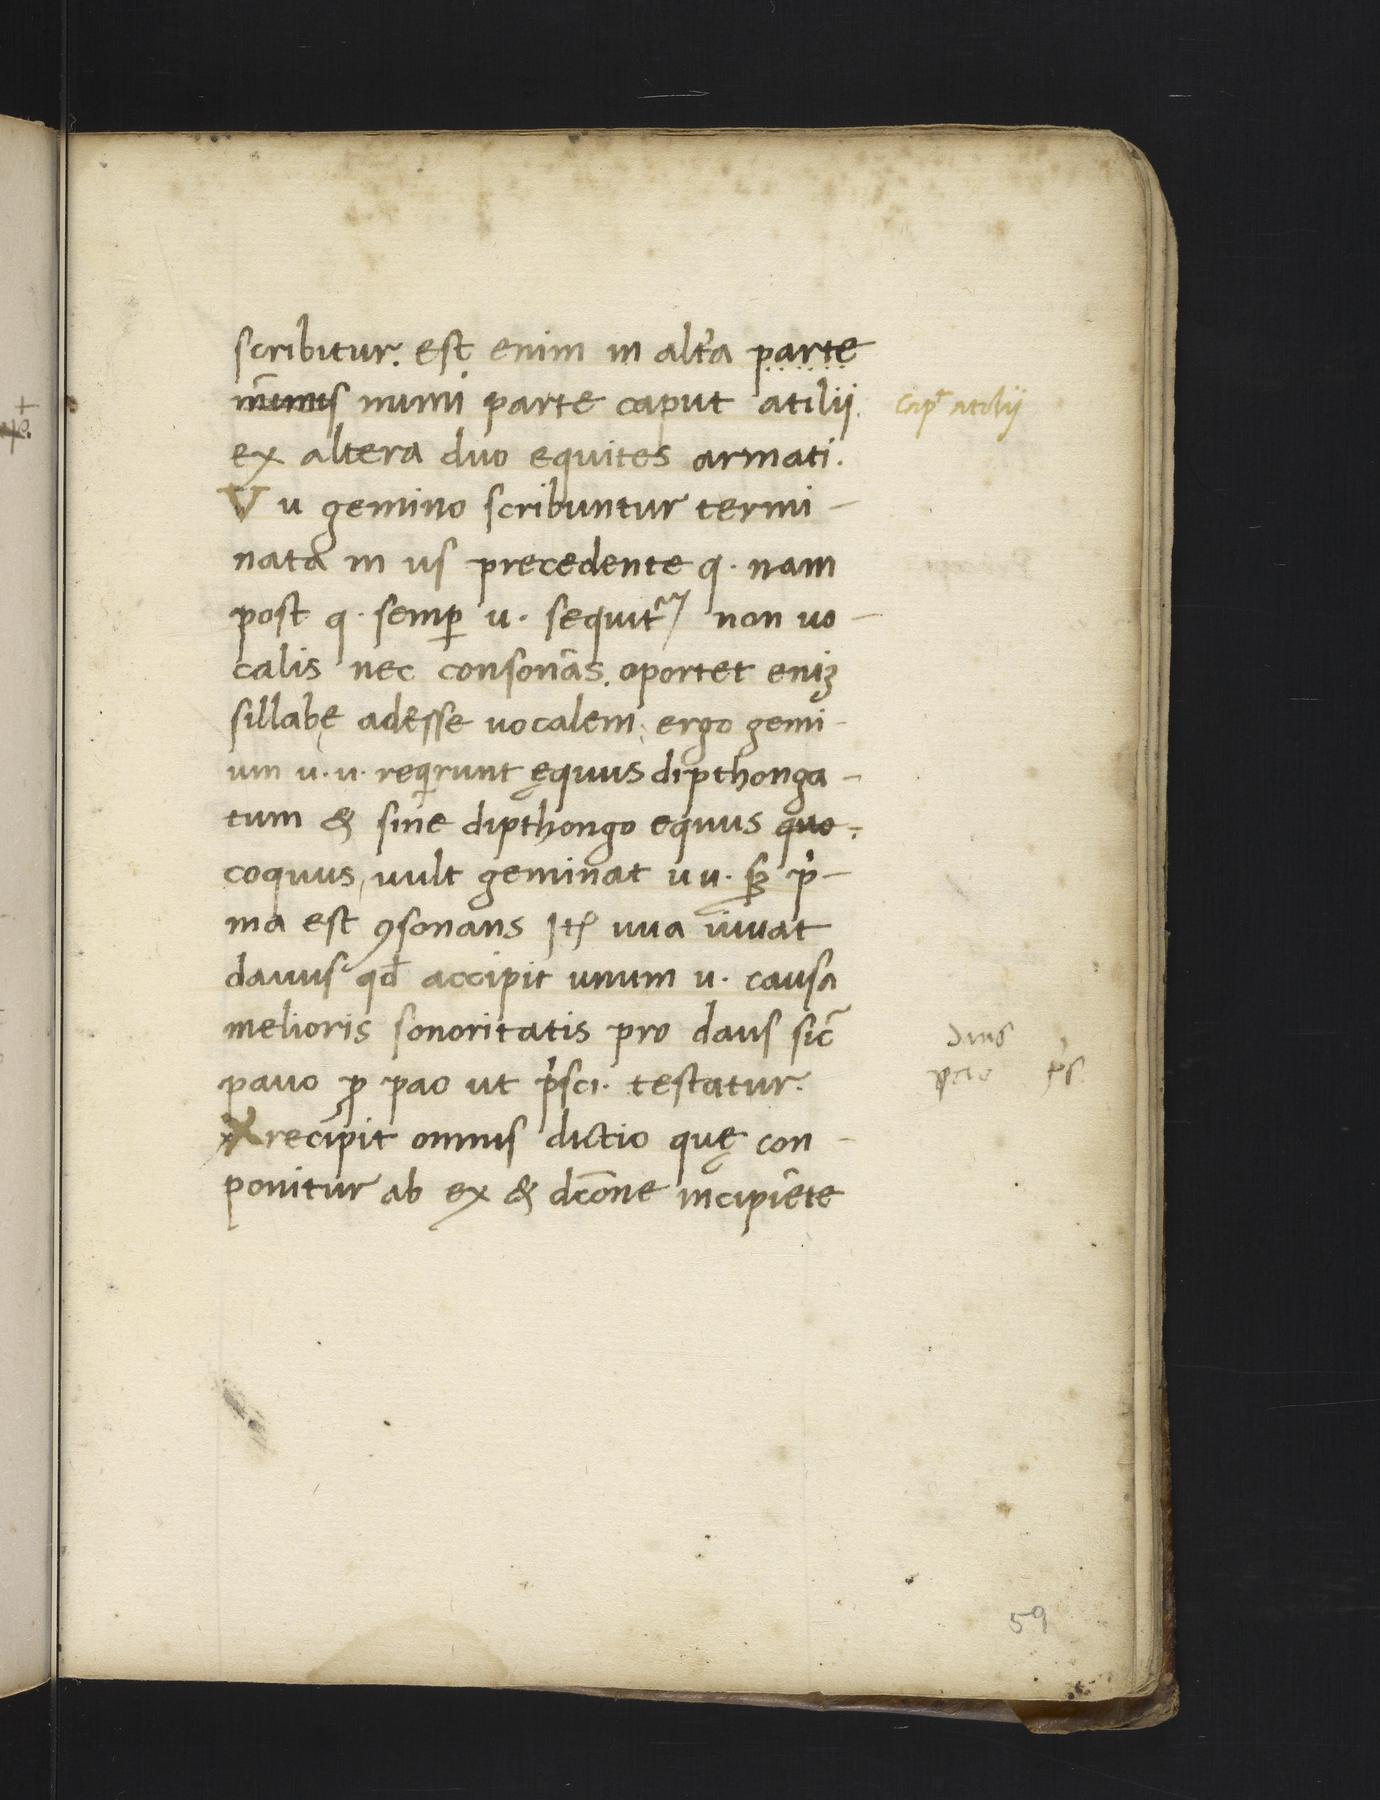 scribitur. est enim in alt̃a parte
numi parte caput atilii.
capᵗ atilij
ex altera duo equites armati.
V u gemino scribuntur termi-
nata in us precedente q. nam
post q. semꝑ u. sequitᷣ non uo-
calis nec consonãs. oportet eniꝫ
sillabę adesse uocalem, ergo gemi-
um u.u. reqͥrunt ęquus dipthonga-
tum & sine dipthongo equus quo-
coquus, uult geminat uu. sꝫ pͥ-
ma est ꝯsonans Itẽ uua iuuat
dauus qd̃ accipit unum u. causa
melioris sonoritatis pro daus sic̃
daus
pauo ꝓ pao ut pͥsci. testatur.
pao pͥs.
X recipit omnis dictio quę con-
ponitur ab ex & dc̃one incipiẽte
59